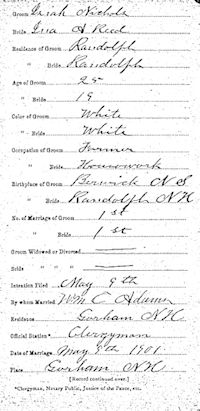 Groom Isiah Nichols
Bride Ina A Reed
Residence of Groom Randolph
" Bride Randolph
Age of Groom 25
" Bride 19
Color of Groom White
" Bride White
Occupation of Groom Farmer
" Bride Housework
Birthplace of Groom Berwick N S
" Bride Randolph N H
No. of Marriage of Groom 1 st
" " Bride 1 st
Groom Widowed or Divorced
Bride " " "
Intention Filed May 9th
By whom Married Wm C Adams
Residence Gorham N H
Official Station* Clergyman
Date of Marriage May 9th 1901
Place Gorham N H
[Record continued over.]
*Clergyman, Notary Public, Justice of the Peace, etc.